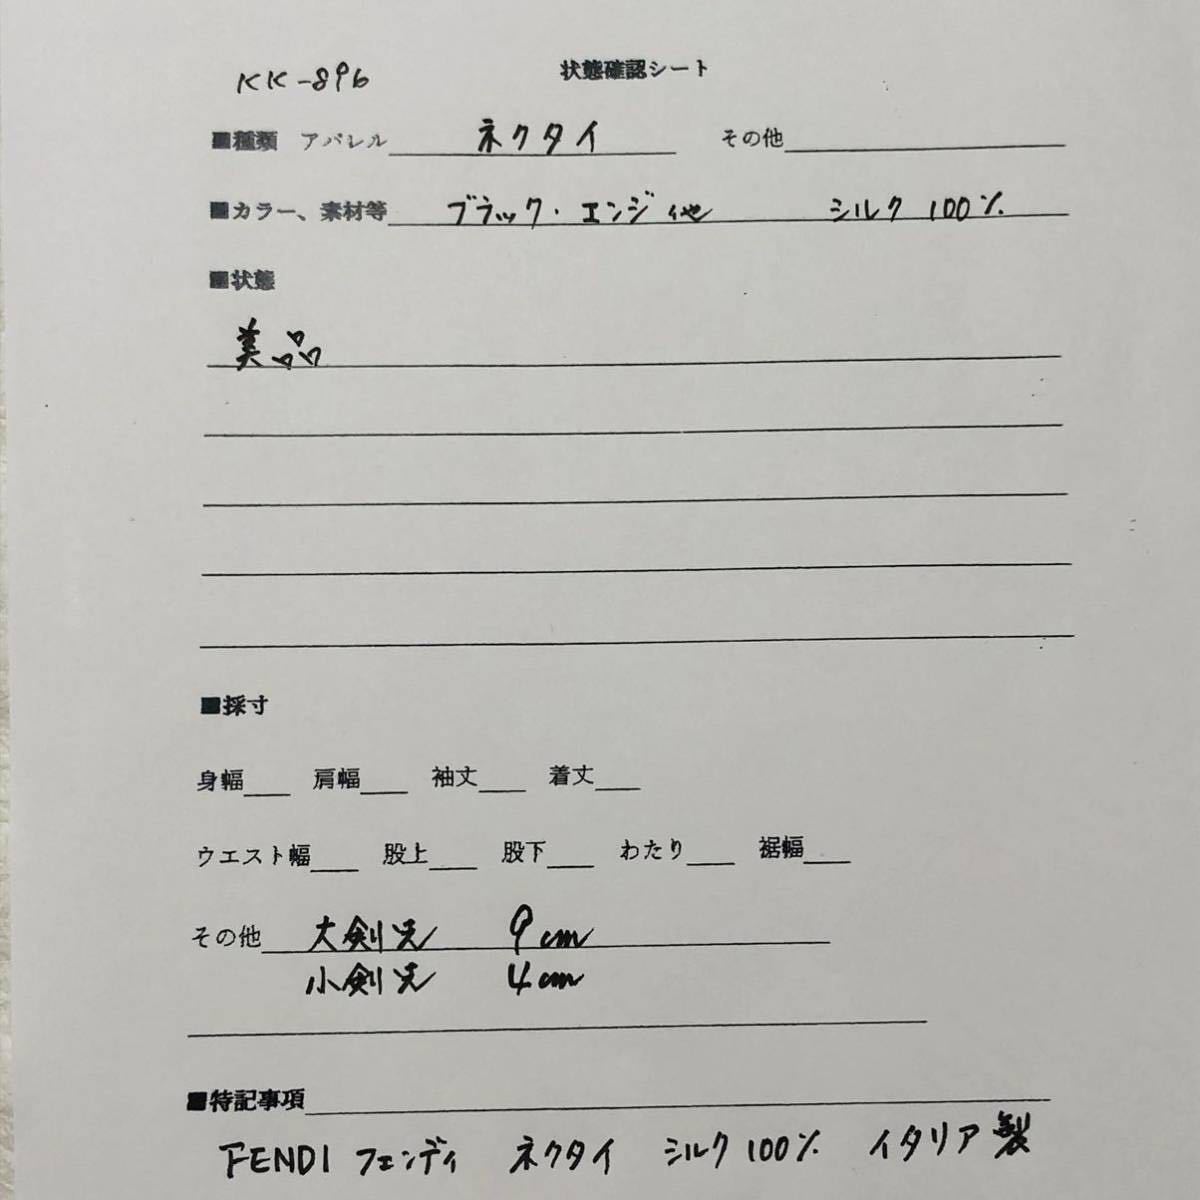 KK-896
状態確認シート
■種類 アパレル ネクタイ その他
■カラー、素材等 ブラック・エンジ他 シルク100%
■状態
美品
■採寸
身幅 肩幅 袖丈 着丈
ウエスト幅 股上 股下 わたり 裾幅
その他 大剣先 9cm
小剣先 4cm
■特記事項
FENDI フェンディ ネクタイ シルク100% イタリア製